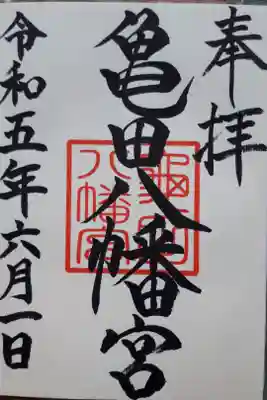 奉拝
亀田八幡宮
令和五年六月一日